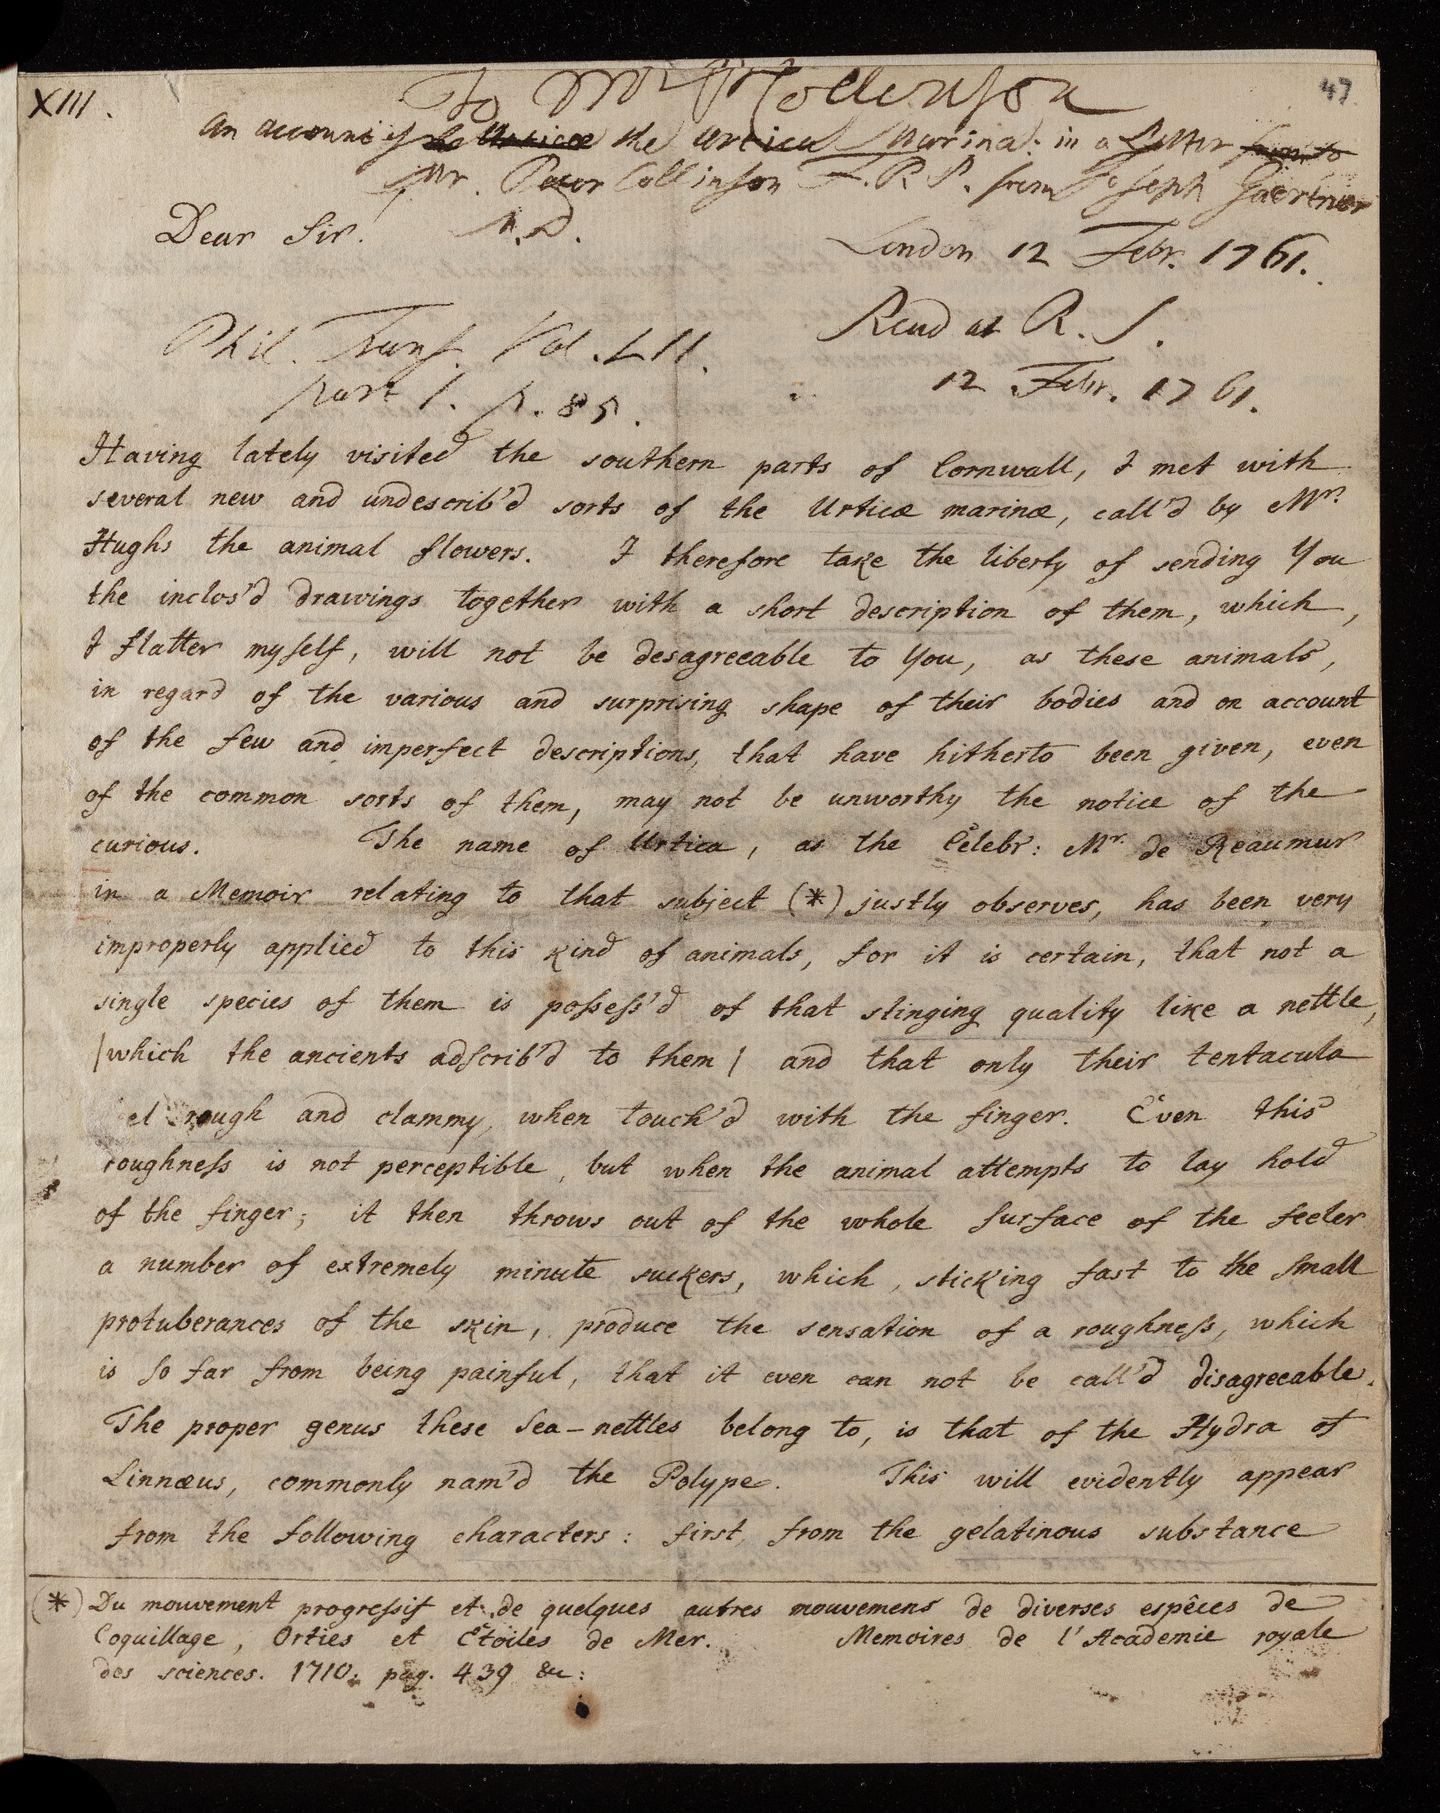 To Mr P Collinson
47
XIII.
An account of the Urticæ the Urtica Marina: in a Letter from to
Mr. Peter Collinson F.R.S. from Joseph Gaertner
M.D.
Dear Sir.
London 12 Febr. 1761.
Phil. Transf. Vol. LII.
Read at R. S.
part 1. p. 85.
12 Febr. 1761.
Having lately visited the southern parts of Cornwall, I met with
several new and undescrib'd sorts of the Urticæ marinæ, call'd by Mr.
Hughs the animal flowers. I therefore take the liberty of sending You
the inclos'd drawings together with a short description of them, which,
I flatter myself, will not be desagreeable to You, as these animals,
in regard of the various and surprising shape of their bodies and on account
of the few and imperfect descriptions, that have hitherto been given, even
of the common sorts of them, may not be unworthy the notice of the
curious. The name of Urtica, as the Celebr: Mr. de Reaumur
in a Memoir relating to that subject (*) justly observes, has been very
improperly applied to this kind of animals, for it is certain, that not a
single species of them is possess'd of that stinging quality like a nettle,
/which the ancients adscrib'd to them/ and that only their tentacula
rough and clammy, when touch'd with the finger. Even this
roughness is not perceptible, but when the animal attempts to lay hold
of the finger; it then throws out of the whole surface of the feeler
a number of extremely minute suckers, which, sticking fast to the small
protuberances of the skin, produce the sensation of a roughness, which
is so far from being painful, that it even can not be call'd disagreeable.
The proper genus these sea-nettles belong to, is that of the Hydra of
Linnæus, commonly nam'd the Polype. This will evidently appear
from the following characters: first, from the gelatinous substance
(*) Du mouvement progressif et de quelques autres mouvemens de diverses espêces de
Coquillage, Orties et Étoiles de Mer. Memoires de l'Academie royale
des sciences. 1710. pag. 439 &c: